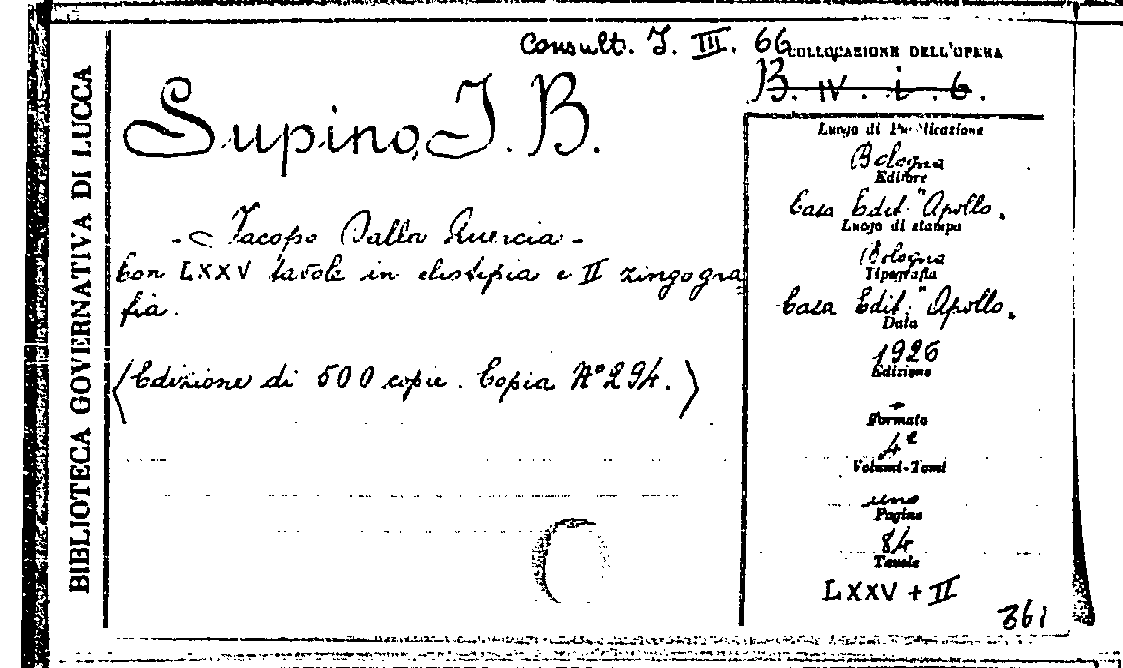 BIBLIOTECA GOVERNATIVA DI LUCCA
Consult. I. III. 66
COLLOCAZIONE DELL'OPERA
B. IV. i. 6.
Supino, I. B.
- Jacopo Dalla Quercia -
Con LXXV tavole in eliotipia e II zingogra
fia.
(Edizione di 500 copie. Copia N° 294.)
Luogo di Pubblicazione
Bologna
Editore
Casa Edit. "Apollo„
Luogo di stampa
Bologna
Tipografia
Casa Edit. "Apollo„
Data
1926
Edizione
-
Formato
4°
Volumi-Tomi
uno
Pagine
84
Tavole
LXXV + II
361